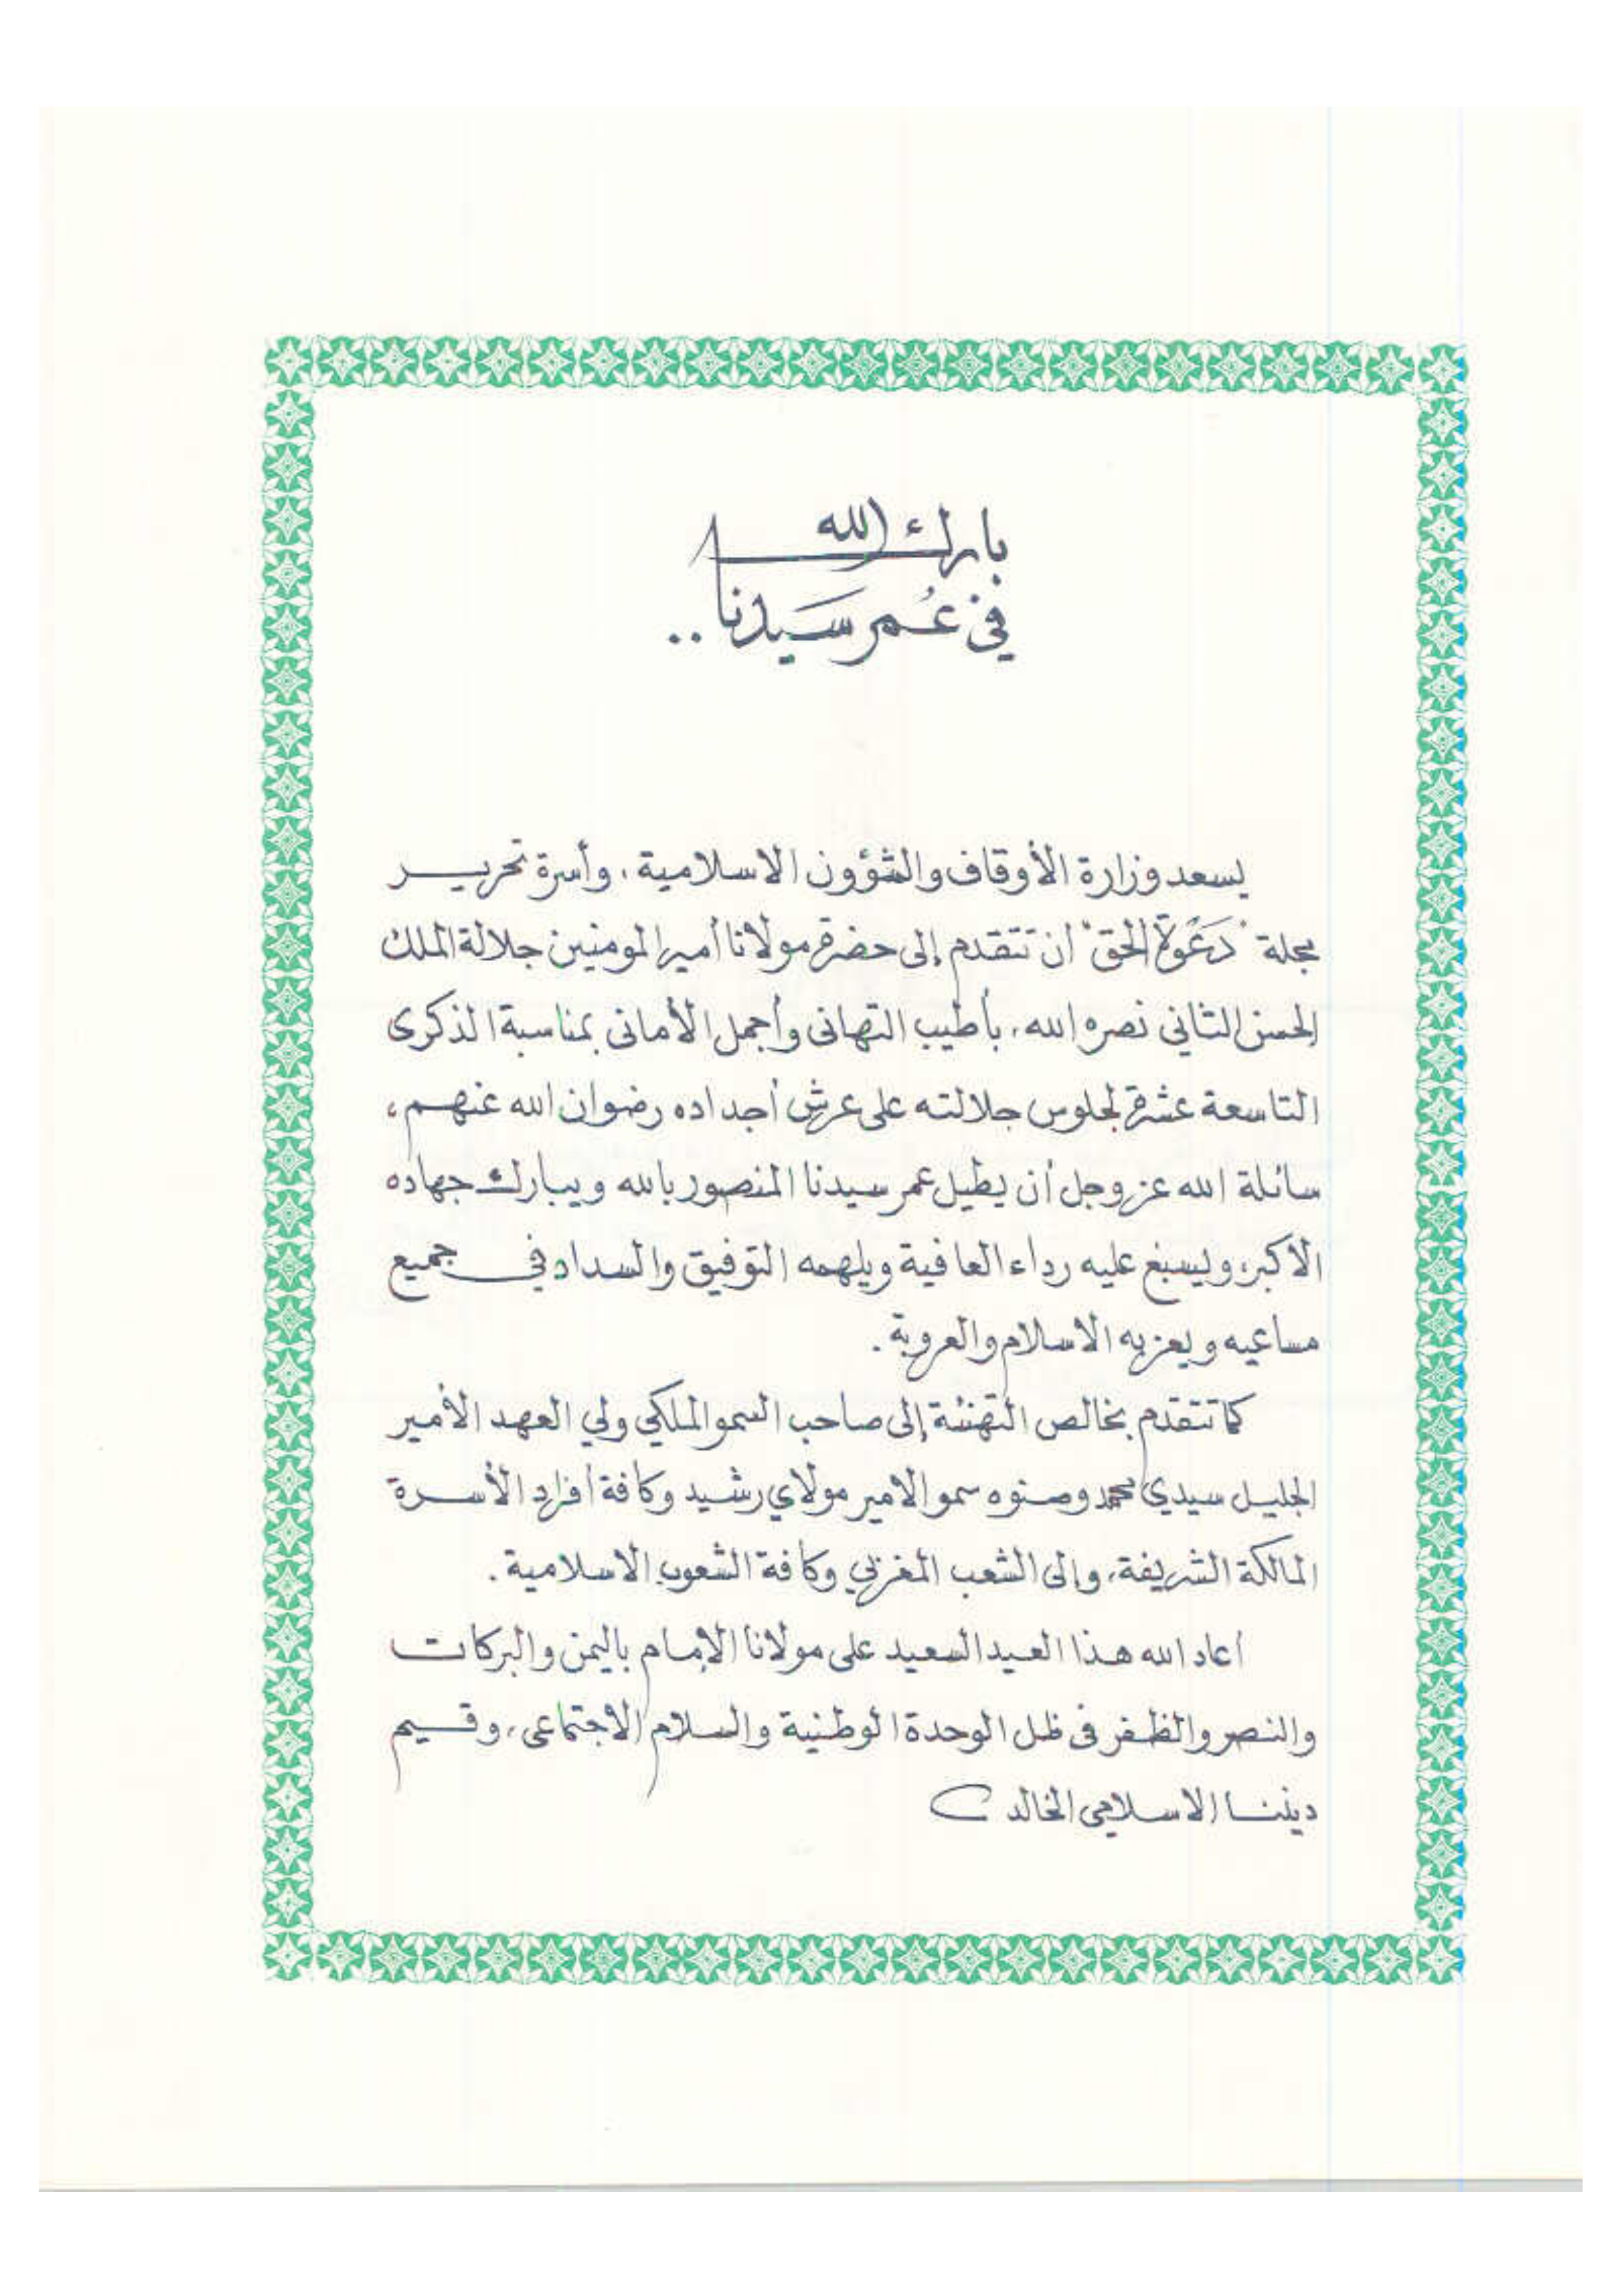 بارك الله
في عُمر سَيدنا ..
يسعد وزارة الأوقاف والشؤون الاسلامية، وأسرة تحريـر
مجلة "دَعْوة الحق" أن تتقدم إلى حضرة مولانا أمير المومنين جلالة الملك
الحسن الثاني نصره الله، بأطيب التهانى وأجمل الأمانى بمناسبة الذكرى
التاسعة عشرة لجلوس جلالته على عرش أجداده رضوان الله عنهم،
سائلة الله عز وجل أن يطيل عمر سيدنا المنصور بالله ويبارك جهاده
الاكبر، ويسبغ عليه رداء العافية ويلهمه التوفيق والسداد في جميع
مساعيه ويعز به الاسلام والعروبة .
كما تتقدم بخالص التهنئة إلى صاحب السمو الملكي ولي العهد الأمير
الجليل سيدي محمد وصنوه سمو الامير مولاي رشيد وكافة أفراد الأسرة
المالكة الشريفة، وإلى الشعب المغربي وكافة الشعوب الاسلامية .
أعاد الله هذا العيد السعيد على مولانا الإمام باليمن والبركات
والنصر والظفر فى ظل الوحدة الوطنية والسلام الاجتماعى، وقيم
ديننا الاسلامي الخالد